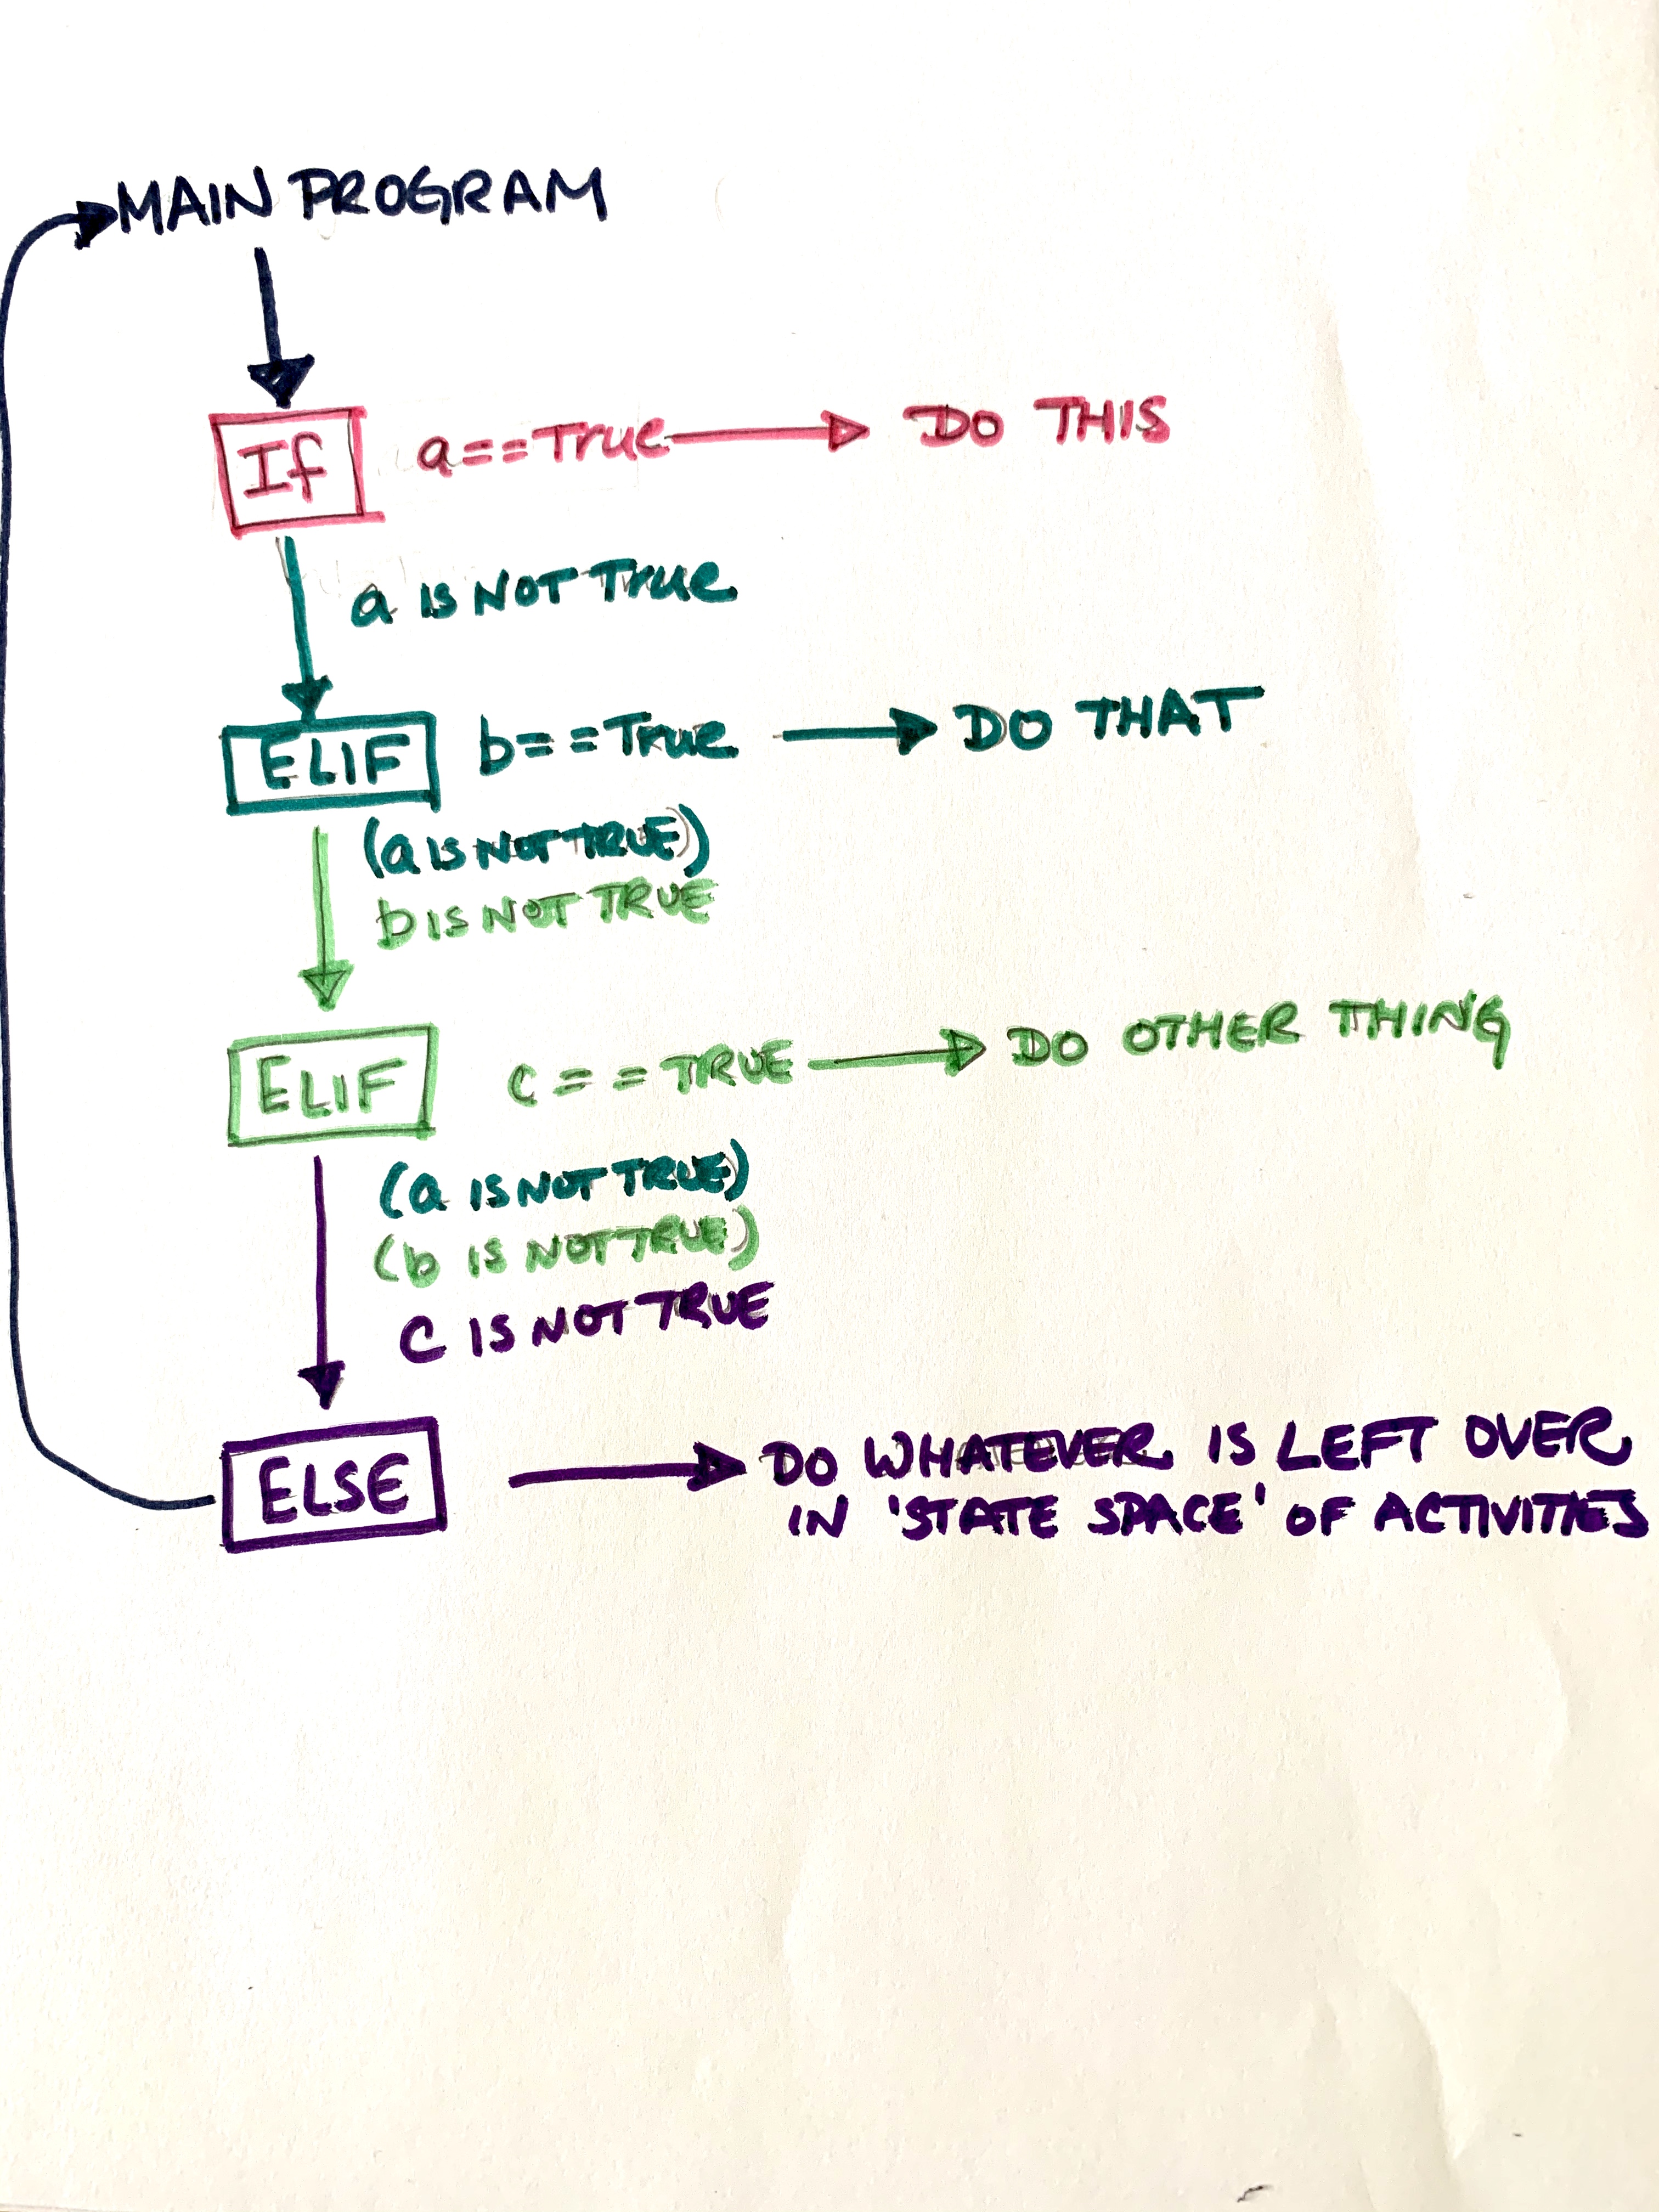 MAIN PROGRAM
If a==True DO THIS
a IS NOT True
ELIF b==True DO THAT
(a IS NOT TRUE)
b IS NOT TRUE
ELIF c==TRUE DO OTHER THING
(a IS NOT TRUE)
(b IS NOT TRUE)
C IS NOT TRUE
ELSE DO WHATEVER IS LEFT OVER
IN 'STATE SPACE' OF ACTIVITIES